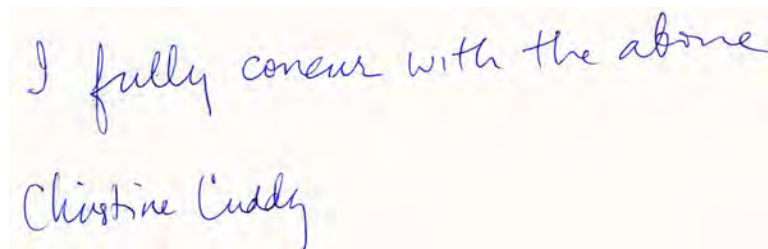 I fully concur with the above
Christine Cuddy